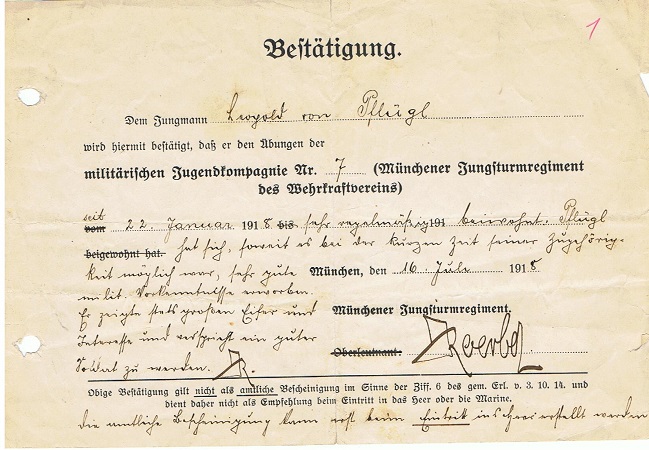 1
Bestätigung.
Dem Jungmann Leopold von Pflügl
wird hiermit bestätigt, daß er den Übungen der
militärischen Jugendkompagnie Nr. 7 (Münchener Jungsturmregiment
des Wehrkraftvereins)
seit
vom 22. Januar 1918 bis sehr regelmäßig 191 beiwohnt. Pflügl
beigewohnt hat. hat sich, soweit es bei der kurzen Zeit seiner Zugehörig-
keit möglich war, sehr gute München, den 16. Juli 1918
milit. Vorkenntnisse erworben.
Er zeigte stets großen Eifer und Münchener Jungsturmregiment.
Interesse und verspricht ein guter
Oberleutnant.
Soldat zu werden.
Obige Bestätigung gilt nicht als amtliche Bescheinigung im Sinne der Ziff. 6 des gem. Erl. v. 3. 10. 14. und
dient daher nicht als Empfehlung beim Eintritt in das Heer oder die Marine.
die amtliche Bescheinigung kann erst beim Eintritt ins Heer erstellt werden